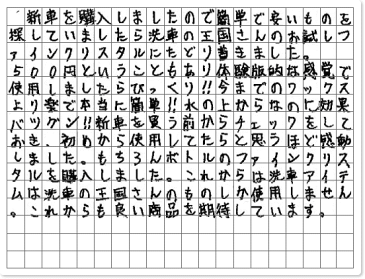 新車を購入しましたので簡単で安いものを
探していましたら洗車の王国さんのお試しフ
ァインクリスタルにたどり着きました。
５００円ということもあり体験版的な感覚で
使用しましたらびっくり!!今までのワックス
より楽で本当に簡単!!水の上からなのに効果
バツグン!!新車を買う前からチェックをして
おき、初めから使用してたらと思うほど感動
しました。もちろんボトルのファインクリス
タルを購入しました。これからは洗車アイテ
ムは洗車の王国さんのものしか使用しません
。これからも良い商品を期待しています。